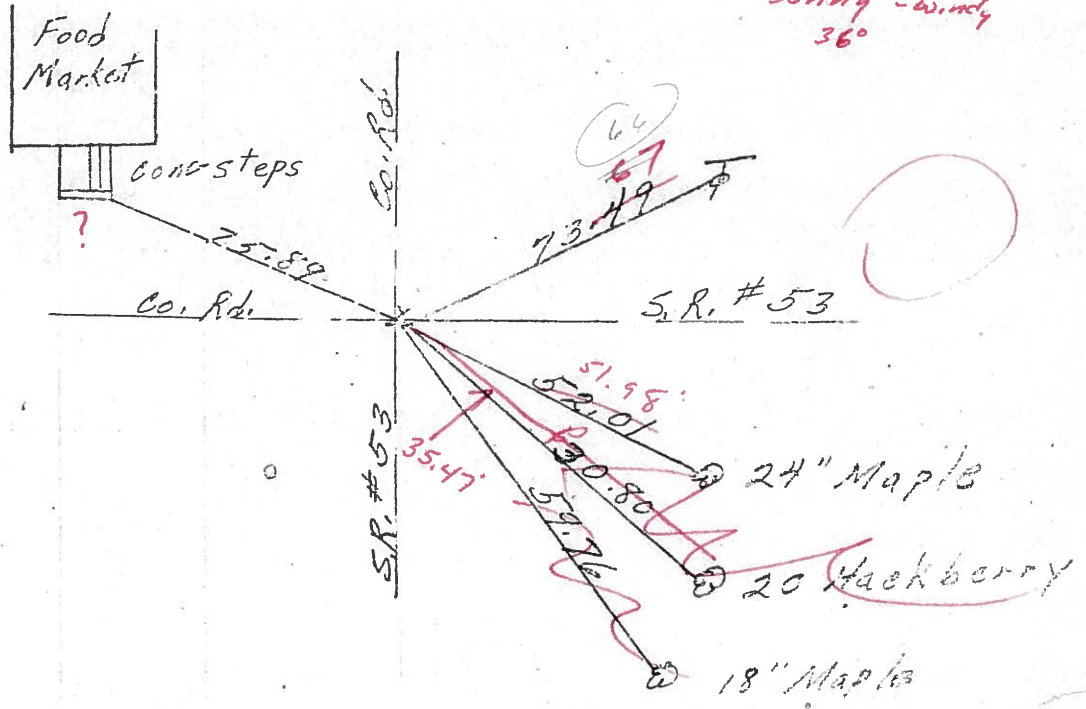 Sunny - Windy
36°
Food
Market
conc steps
?
Co. Rd.
64
67
73.49
25.89
Co. Rd.
S.R. # 53
51.98'
52.01
35.47'
30.80
59.76
S.R. # 53
24" Maple
20 Hackberry
18" Maple